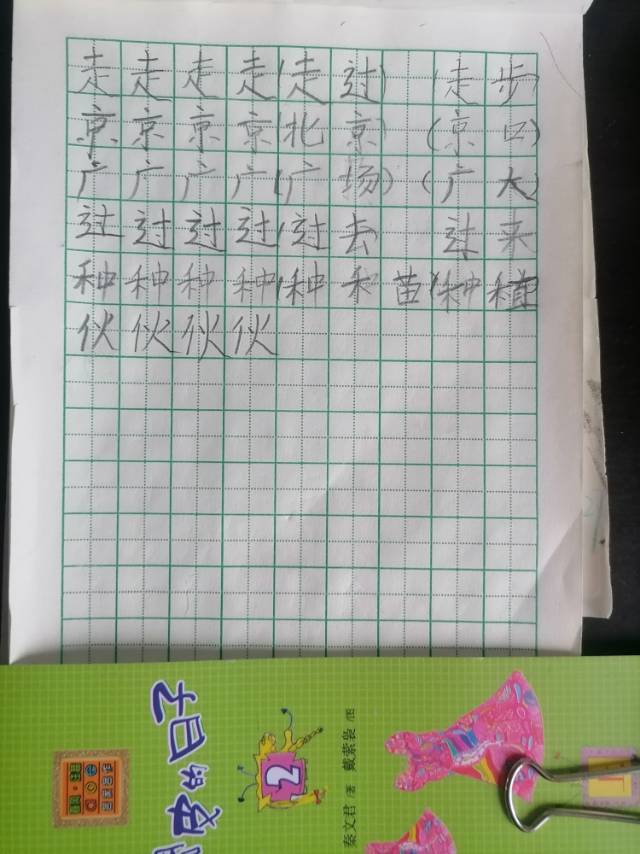 走走走走(走过) (走步)
京京京京(北京) (京口)
广广广广(广场) (广大)
过过过过(过去 过来
种种种种(种禾苗(种植
伙伙伙伙
2
秦文君 著 戴紫裊 图